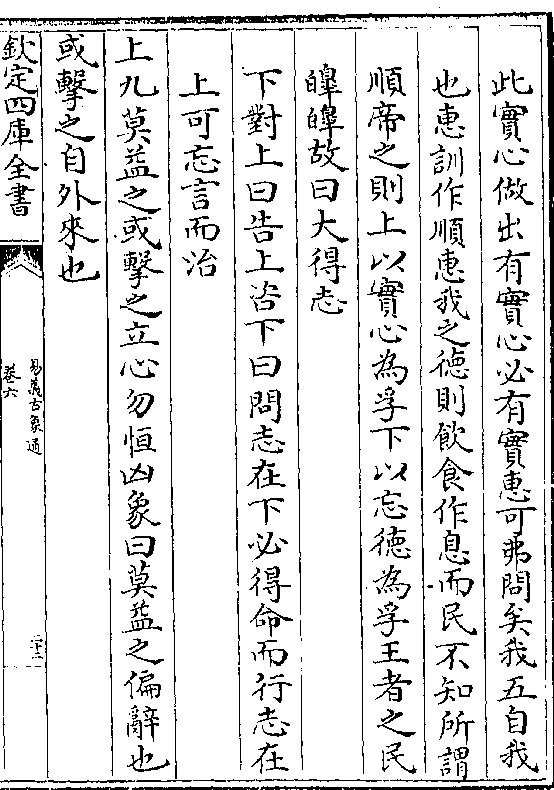 此實心做出有實心必有實惠可弗問矣我五自我
也惠訓作順惠我之徳則飲食作息而民不知所謂
順帝之則上以實心為孚下以忘徳為孚王者之民
皥皥故曰大得志
下對上曰告上咨下曰問志在下必得命而行志在
上可忘言而治
上九莫益之或擊之立心勿恒凶象曰莫益之偏辭也
或擊之自外來也
欽定四庫全書
易義古象通
卷六
二十二